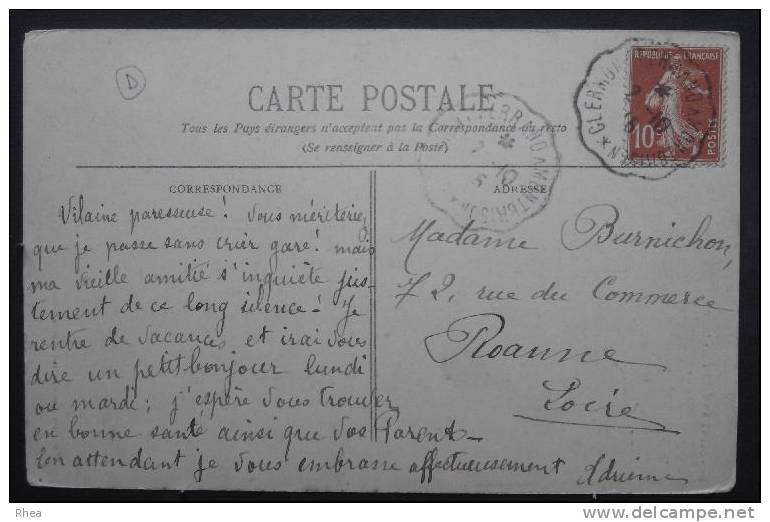 D
CARTE POSTALE
Tous les Pays étrangers n'acceptent pas la Correspondance au recto
(Se renseigner à la Poste)
REPUBLIQUE FRANÇAISE
10
POSTES
CORRESPONDANCE
ADRESSE
Vilaine paresseuse! Vous méritiez
que je passe sans crier gare! mais
ma vieille amitié s'inquiète jus-
tement de ce long silence! Je
rentre de vacances et irai vous
dire un petit bonjour lundi
ou mardi; j'espère vous trouver
en bonne santé ainsi que vos Parents
En attendant je vous embrasse affectueusement
Adrienne
Madame Burnichon,
72, rue du Commerce
Roanne
Loire
Rhea
delcampe.net